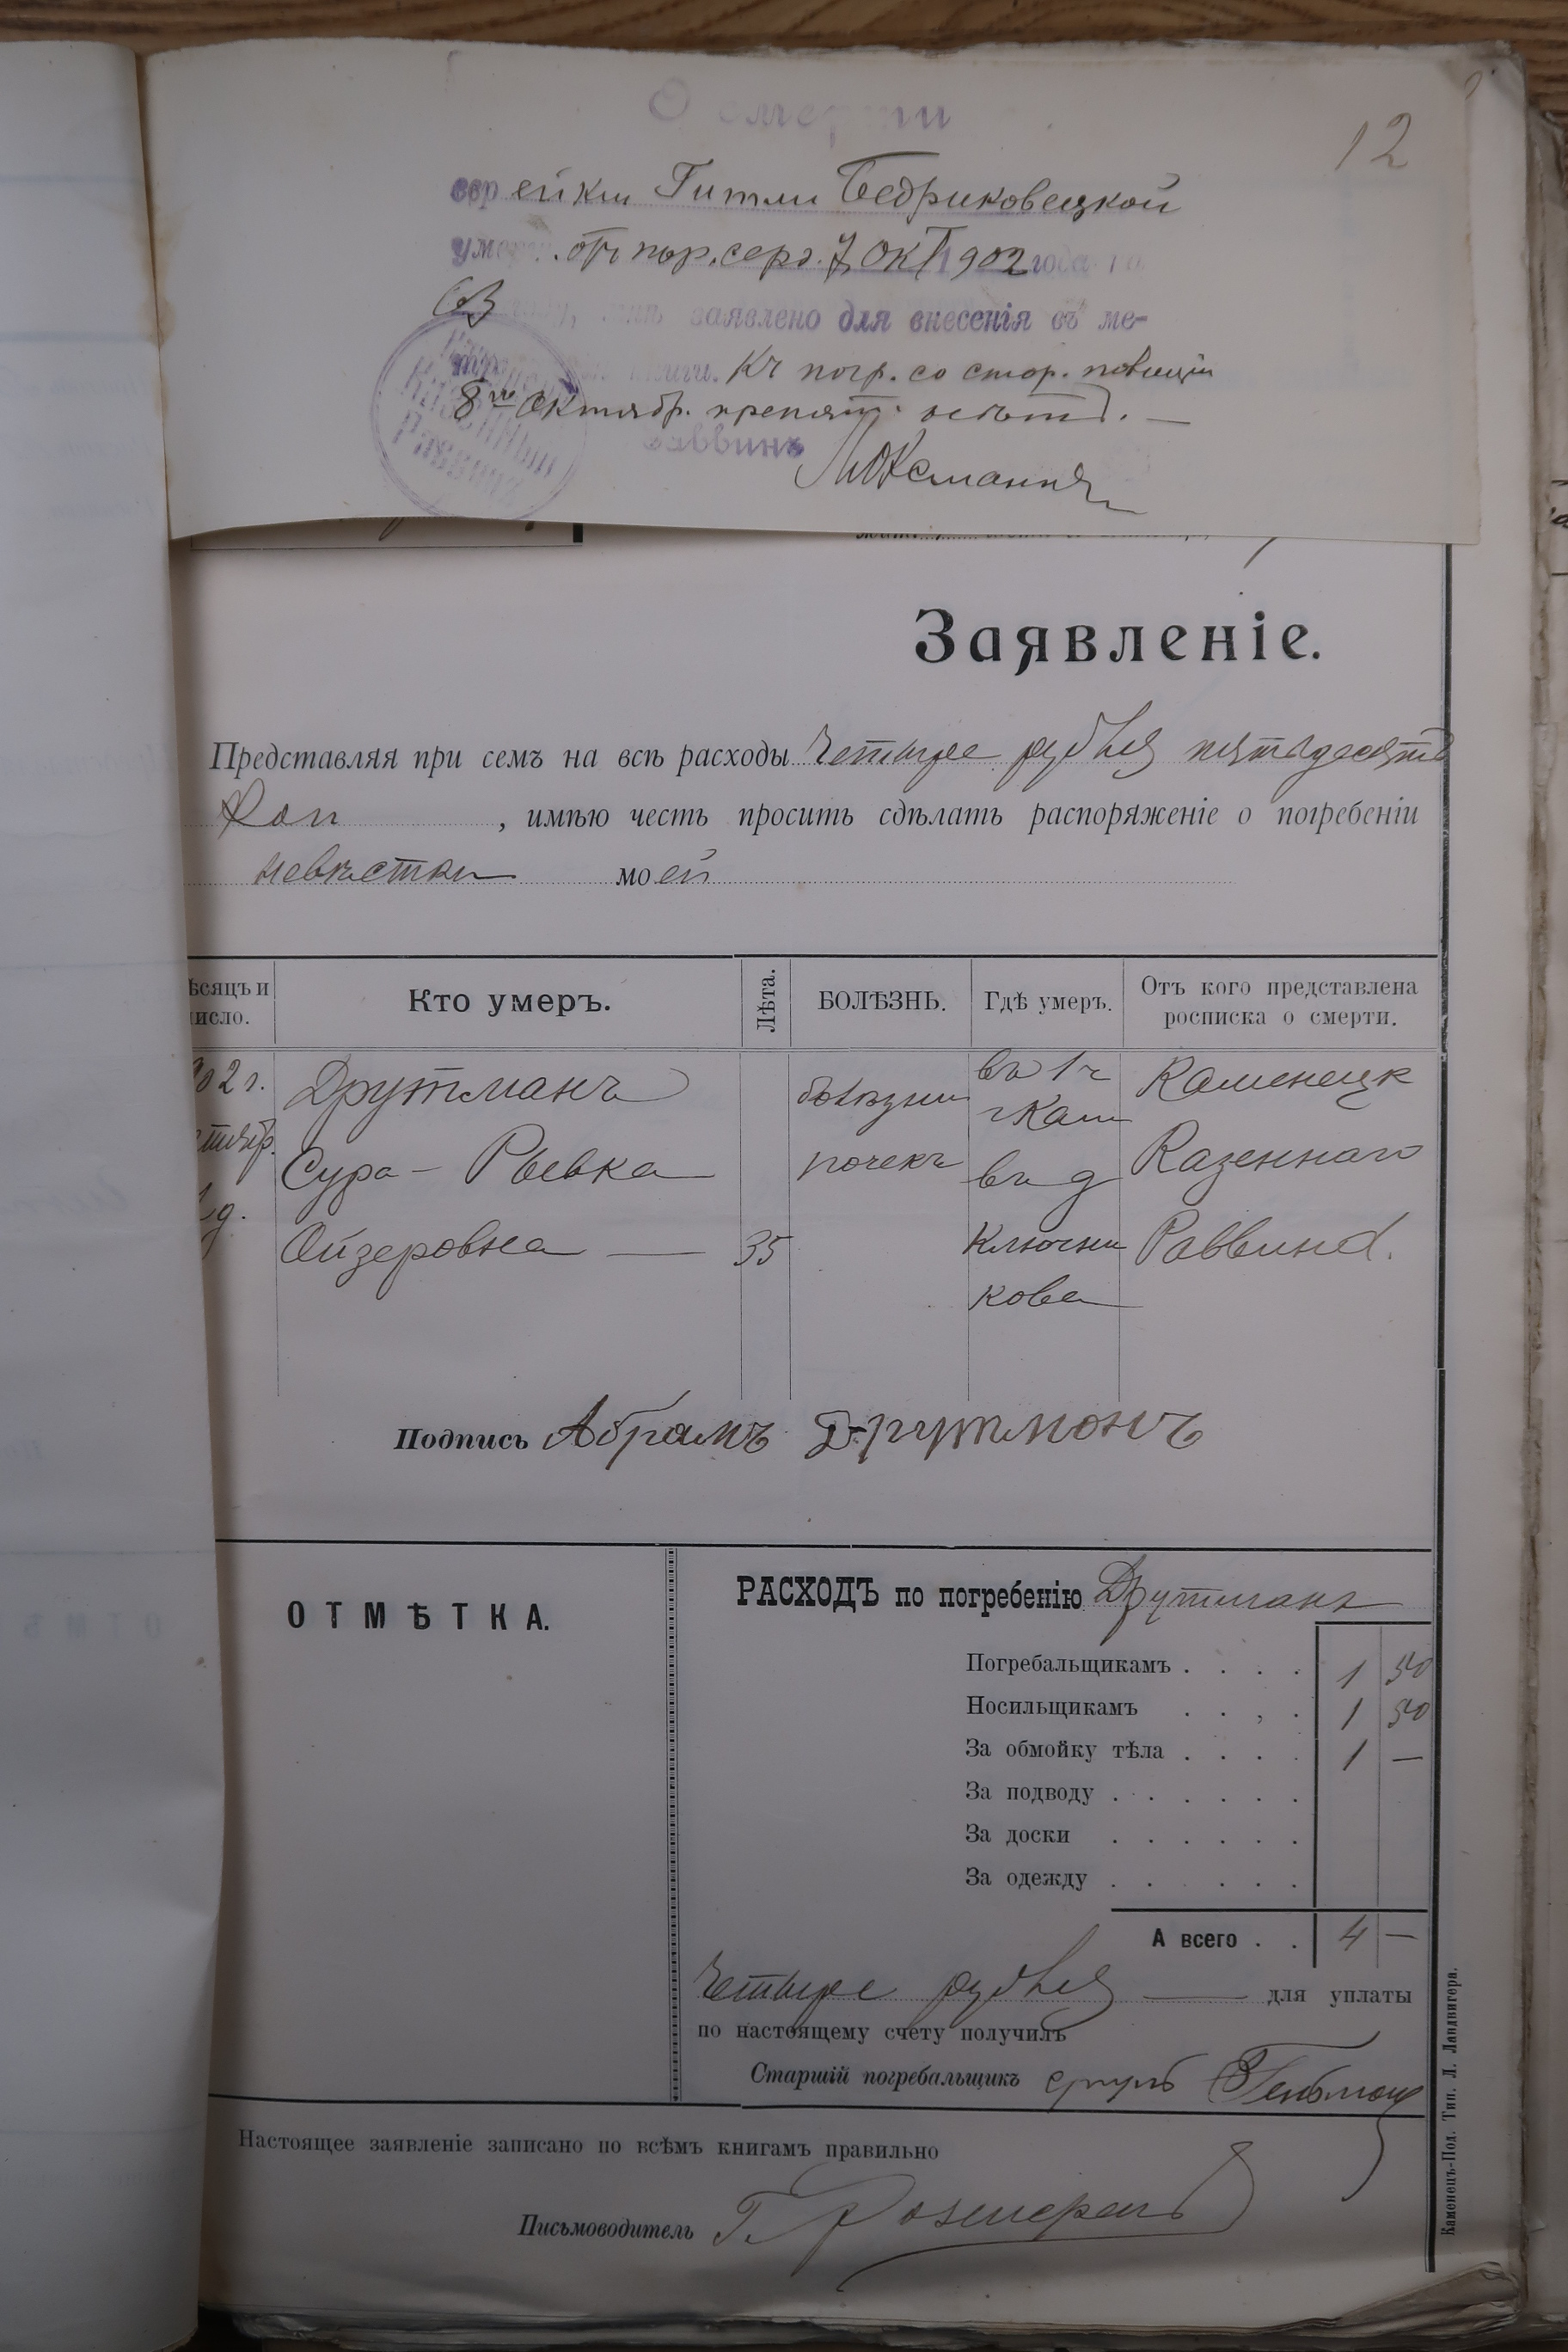 О смерти
12
еврейки Гитли Бедриковецкой
умер. отъ пор. серд. 7 ОКТ 1902 года
63
заявлено для внесенія въ ме-
книги. Къ погр. со стор. полиціи
8го Октябр. препят. нѣтъ. —
Раввинъ
Заявленіе.
Представляя при семъ на всѣ расходы четыре рубля пятьдесятъ
Коп , имѣю честь просить сдѣлать распоряженіе о погребеніи
невѣстки моей
ѣсяцъ и
исло.
Кто умеръ.
Лѣта.
БОЛѢЗНЬ.
Гдѣ умеръ.
Отъ кого представлена
росписка о смерти.
902 г.
Друтманъ
Сура - Рывка
Ойзеровна —
35
болѣзни
почекъ
въ 1 ч
г Кам
въ д
Ключни
кова
Каменецк
Казеннаго
Раввина.
Подпись Абрамъ Друтмонъ
ОТМѢТКА.
РАСХОДЪ по погребенію Друтманъ
Погребальщикамъ . . . . 1 50
Носильщикамъ . . , . 1 50
За обмойку тѣла . . . . 1 —
За подводу . . . . . .
За доски . . . . . .
За одежду . . . . . .
А всего . . 4 —
Четыре рубля — для уплаты
по настоящему счету получилъ
Старшій погребальщикъ
Настоящее заявленіе записано по всѣмъ книгамъ правильно
Письмоводитель Г.
Каменецъ-Под. Тип. Л. Ландвигера.